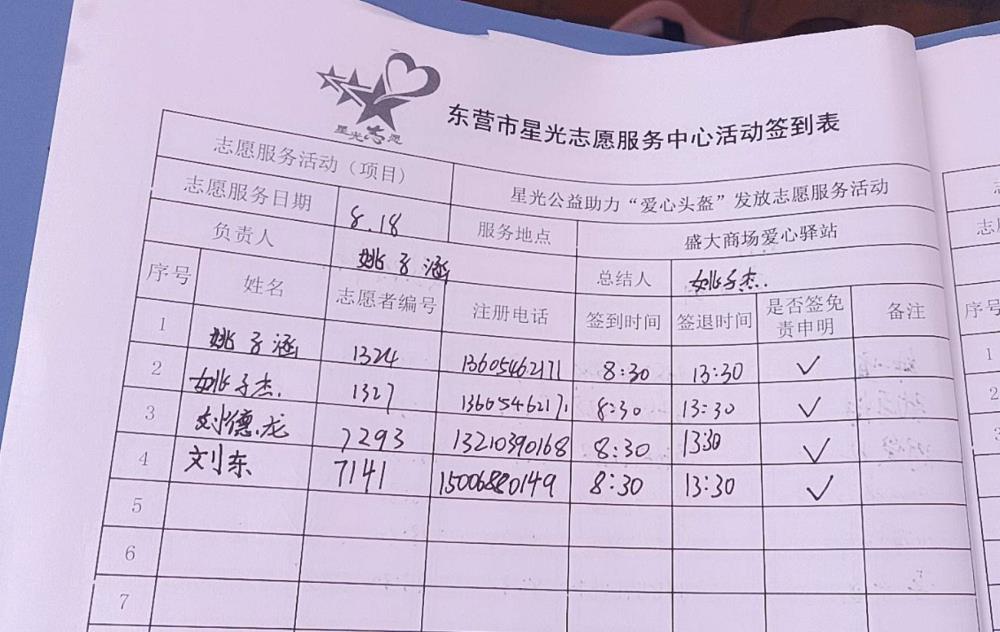 星光志愿
东营市星光志愿服务中心活动签到表
志愿服务活动（项目） 星光公益助力“爱心头盔”发放志愿服务活动
志愿服务日期 8.18 服务地点 盛大商场爱心驿站
负责人 姚子涵 总结人 姚子杰.
序号 姓名 志愿者编号 注册电话 签到时间 签退时间 是否签免责申明 备注
1 姚子涵 1324 13605462171 8:30 13:30 ✓
2 姚子杰. 1327 13605462171 8:30 13:30 ✓
3 刘德龙 7293 13210390168 8:30 13:30 ✓
4 刘东 7141 15006880149 8:30 13:30 ✓
5
6
7
序号
1
2